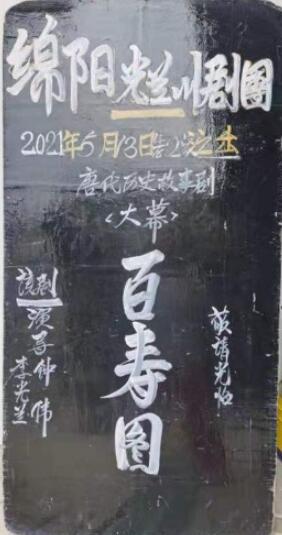 绵阳光兰川剧團
2021年5月13日㐂2次演出
唐代历史故事剧
〈大幕〉
百寿图
敬請光临
演喜仲伟
李光兰